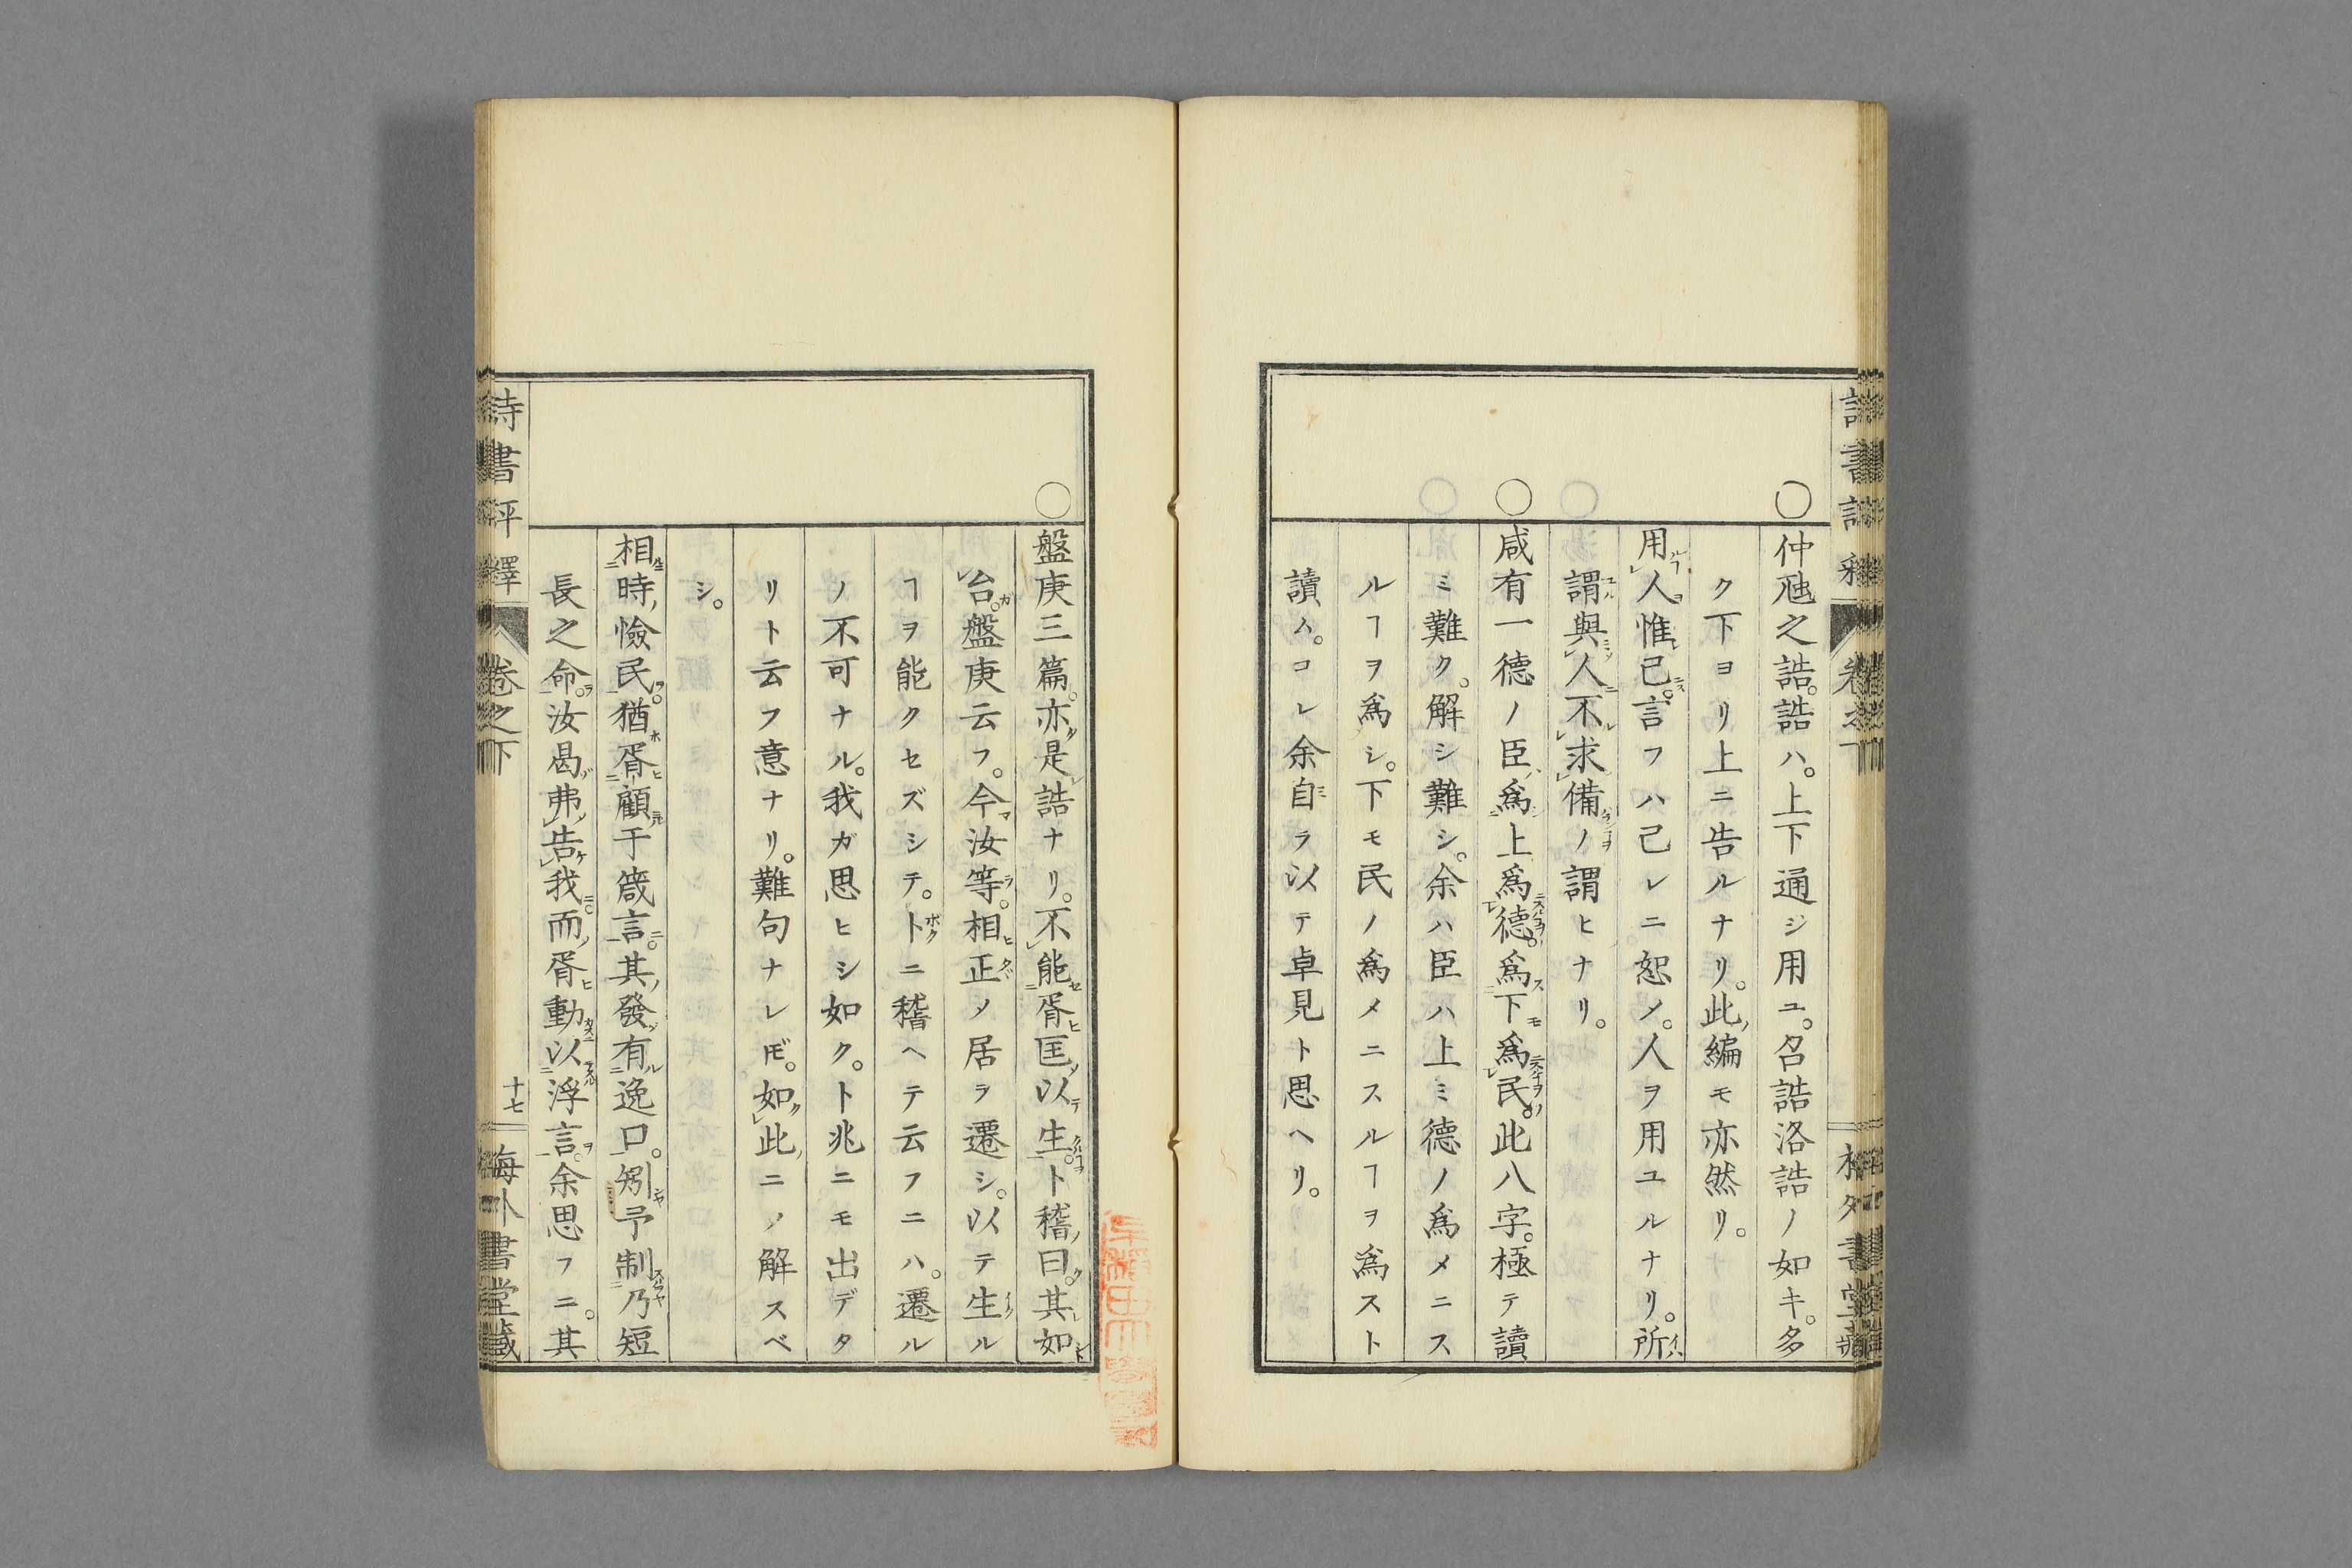 ○仲虺之誥。誥ハ。上下通ジ用ユ。召誥洛誥ノ如キ。多
ク下ヨリ上ニ告ルナリ。此編モ亦然リ。
用人惟己。言フハ己レニ恕ノ。人ヲ用ユルナリ。所
謂與人不求備ノ謂ヒナリ。
○咸有一德ノ臣爲上爲德。爲下爲民。此八字。極テ讀
ミ難ク。解シ難シ。余ハ臣ハ上ミ德ノ爲メニス
ルヿヲ爲シ。下モ民ノ爲メニスルヿヲ爲スト
讀ム。コレ余自ラ以テ卓見ト思ヘリ。
○盤庚三篇。亦是誥ナリ。不能胥匡以生。卜稽曰。其如
台。盤庚云フ。今汝等。相正ノ居ヲ遷シ。以テ生ル
ヿヲ能クセズシテ。卜ニ稽ヘテ云フニハ。遷ル
ノ不可ナル。我ガ思ヒシ如ク。卜兆ニモ出デタ
リト云フ意ナリ。難句ナレ𪜈。如此ニノ解スベ
シ。
相時憸民。猶胥顧于箴言。其發有逸口。矧予制乃短
長之命。汝曷弗告我。而胥動以浮言。余思フニ。其
詩書評釋
卷之下
十七
海外書堂藏